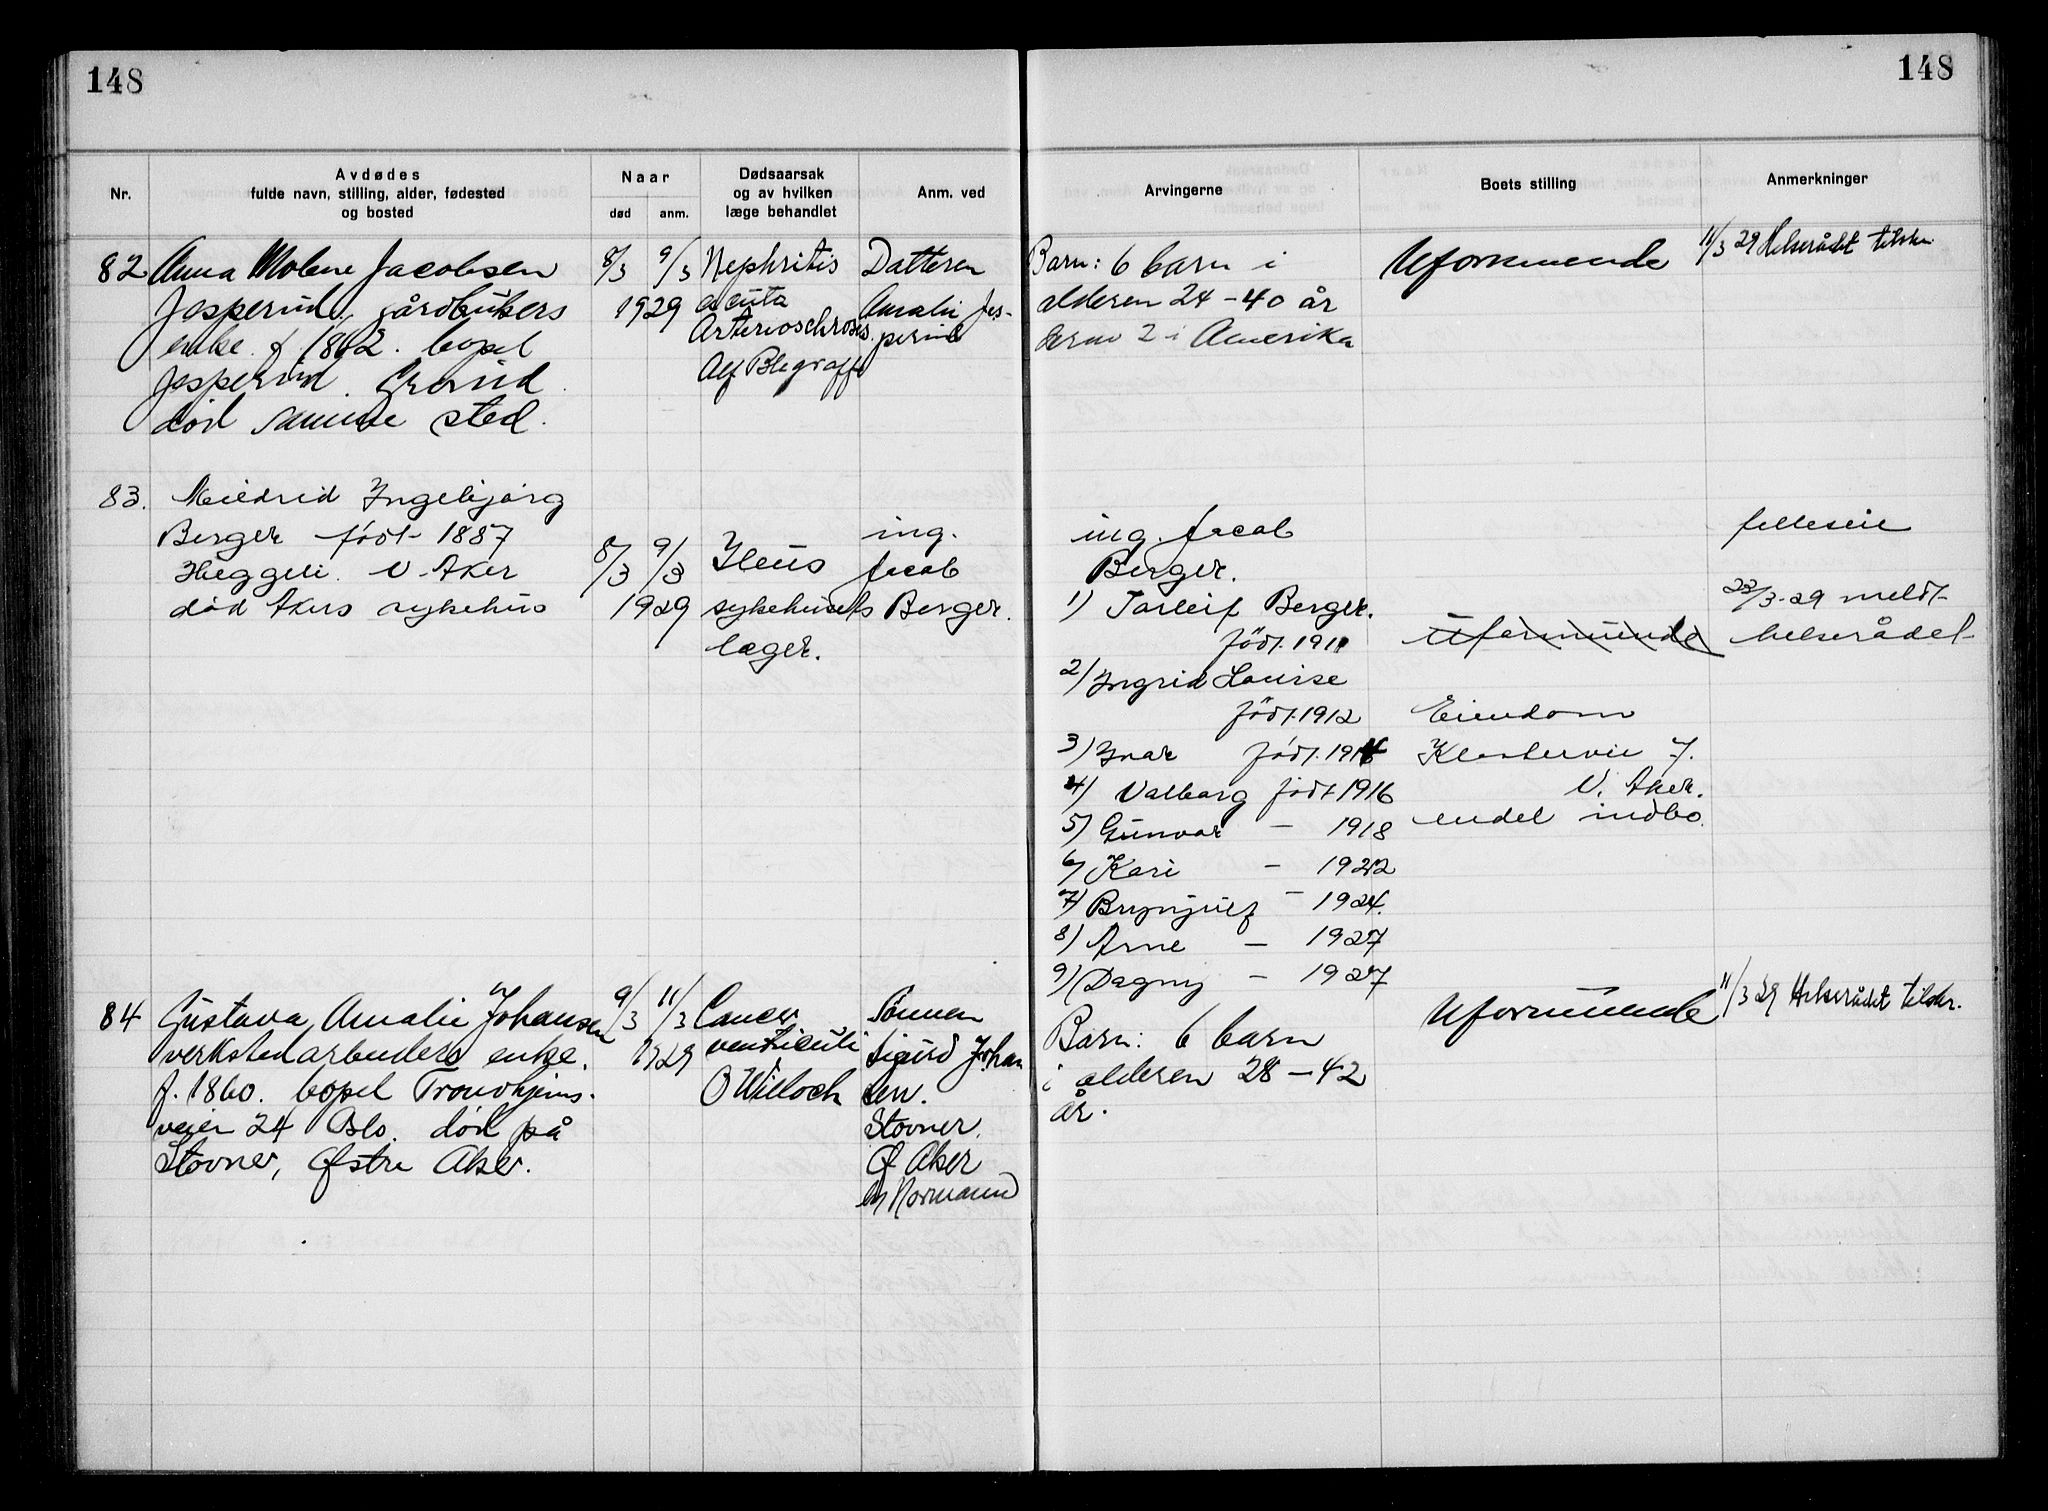 148
148
Nr.
Avdødes
fulde navn, stilling, alder, fødested
og bosted
Naar
død
anm.
Dødsaarsak
og av hvilken
læge behandlet
Anm. ved
Arvingerne
Boets stilling
Anmerkninger
82
Anna Molene Jacobsen
Jesperud, gårdbrukers
enke. f 1862. bopel
Jesperud. Grorud.
død samme sted.
8/3 9/3
1929
Nephritis
acuta
Arterioschrosis.
Alf Blegraff
Datteren
Amalie Jes-
perud
Barn: 6 barn i
alderen 24 - 40 år
derav 2 i Amerika
Uformuende
11/3 29 Helserådet tilskr.
83.
Meidrid Ingebjørg
Berger født 1887
Heggeli. V. Aker
død Akers sykehus
8/3 9/3
1929
Ileus
sykehusets
læger.
ing.
Jacob
Berger.
ing. Jacob
Berger.
1) Torleif Berger.
født. 1911
2) Ingrid Louise
født. 1912
3) Ivar født. 1914
4) Valborg født 1916
5) Gunvor - 1918
6) Kari - 1922
7) Brynjulf - 1924.
8) Arne - 1927
9) Dagny - 1927
Uformuende
Eiendom
Klosterveie 7.
V. Aker.
endel indbo.
felleseie
22/3-29 meldt
helserådet
84
Gustava Amalie Johansen
verkstedarbeiders enke.
f. 1860. bopel Trondhjems-
veien 24 Oslo. død på
Stovner, Østre Aker.
9/3 11/3
1929
Cancer
ventriculi
O Willoch
Sønnen
Sigurd Johan
sen.
Stovner.
Ø Aker
en Normann
Barn: 6 barn
i alderen 28 - 42
år.
Uformuende
11/3 29 Helserådet tilskr.